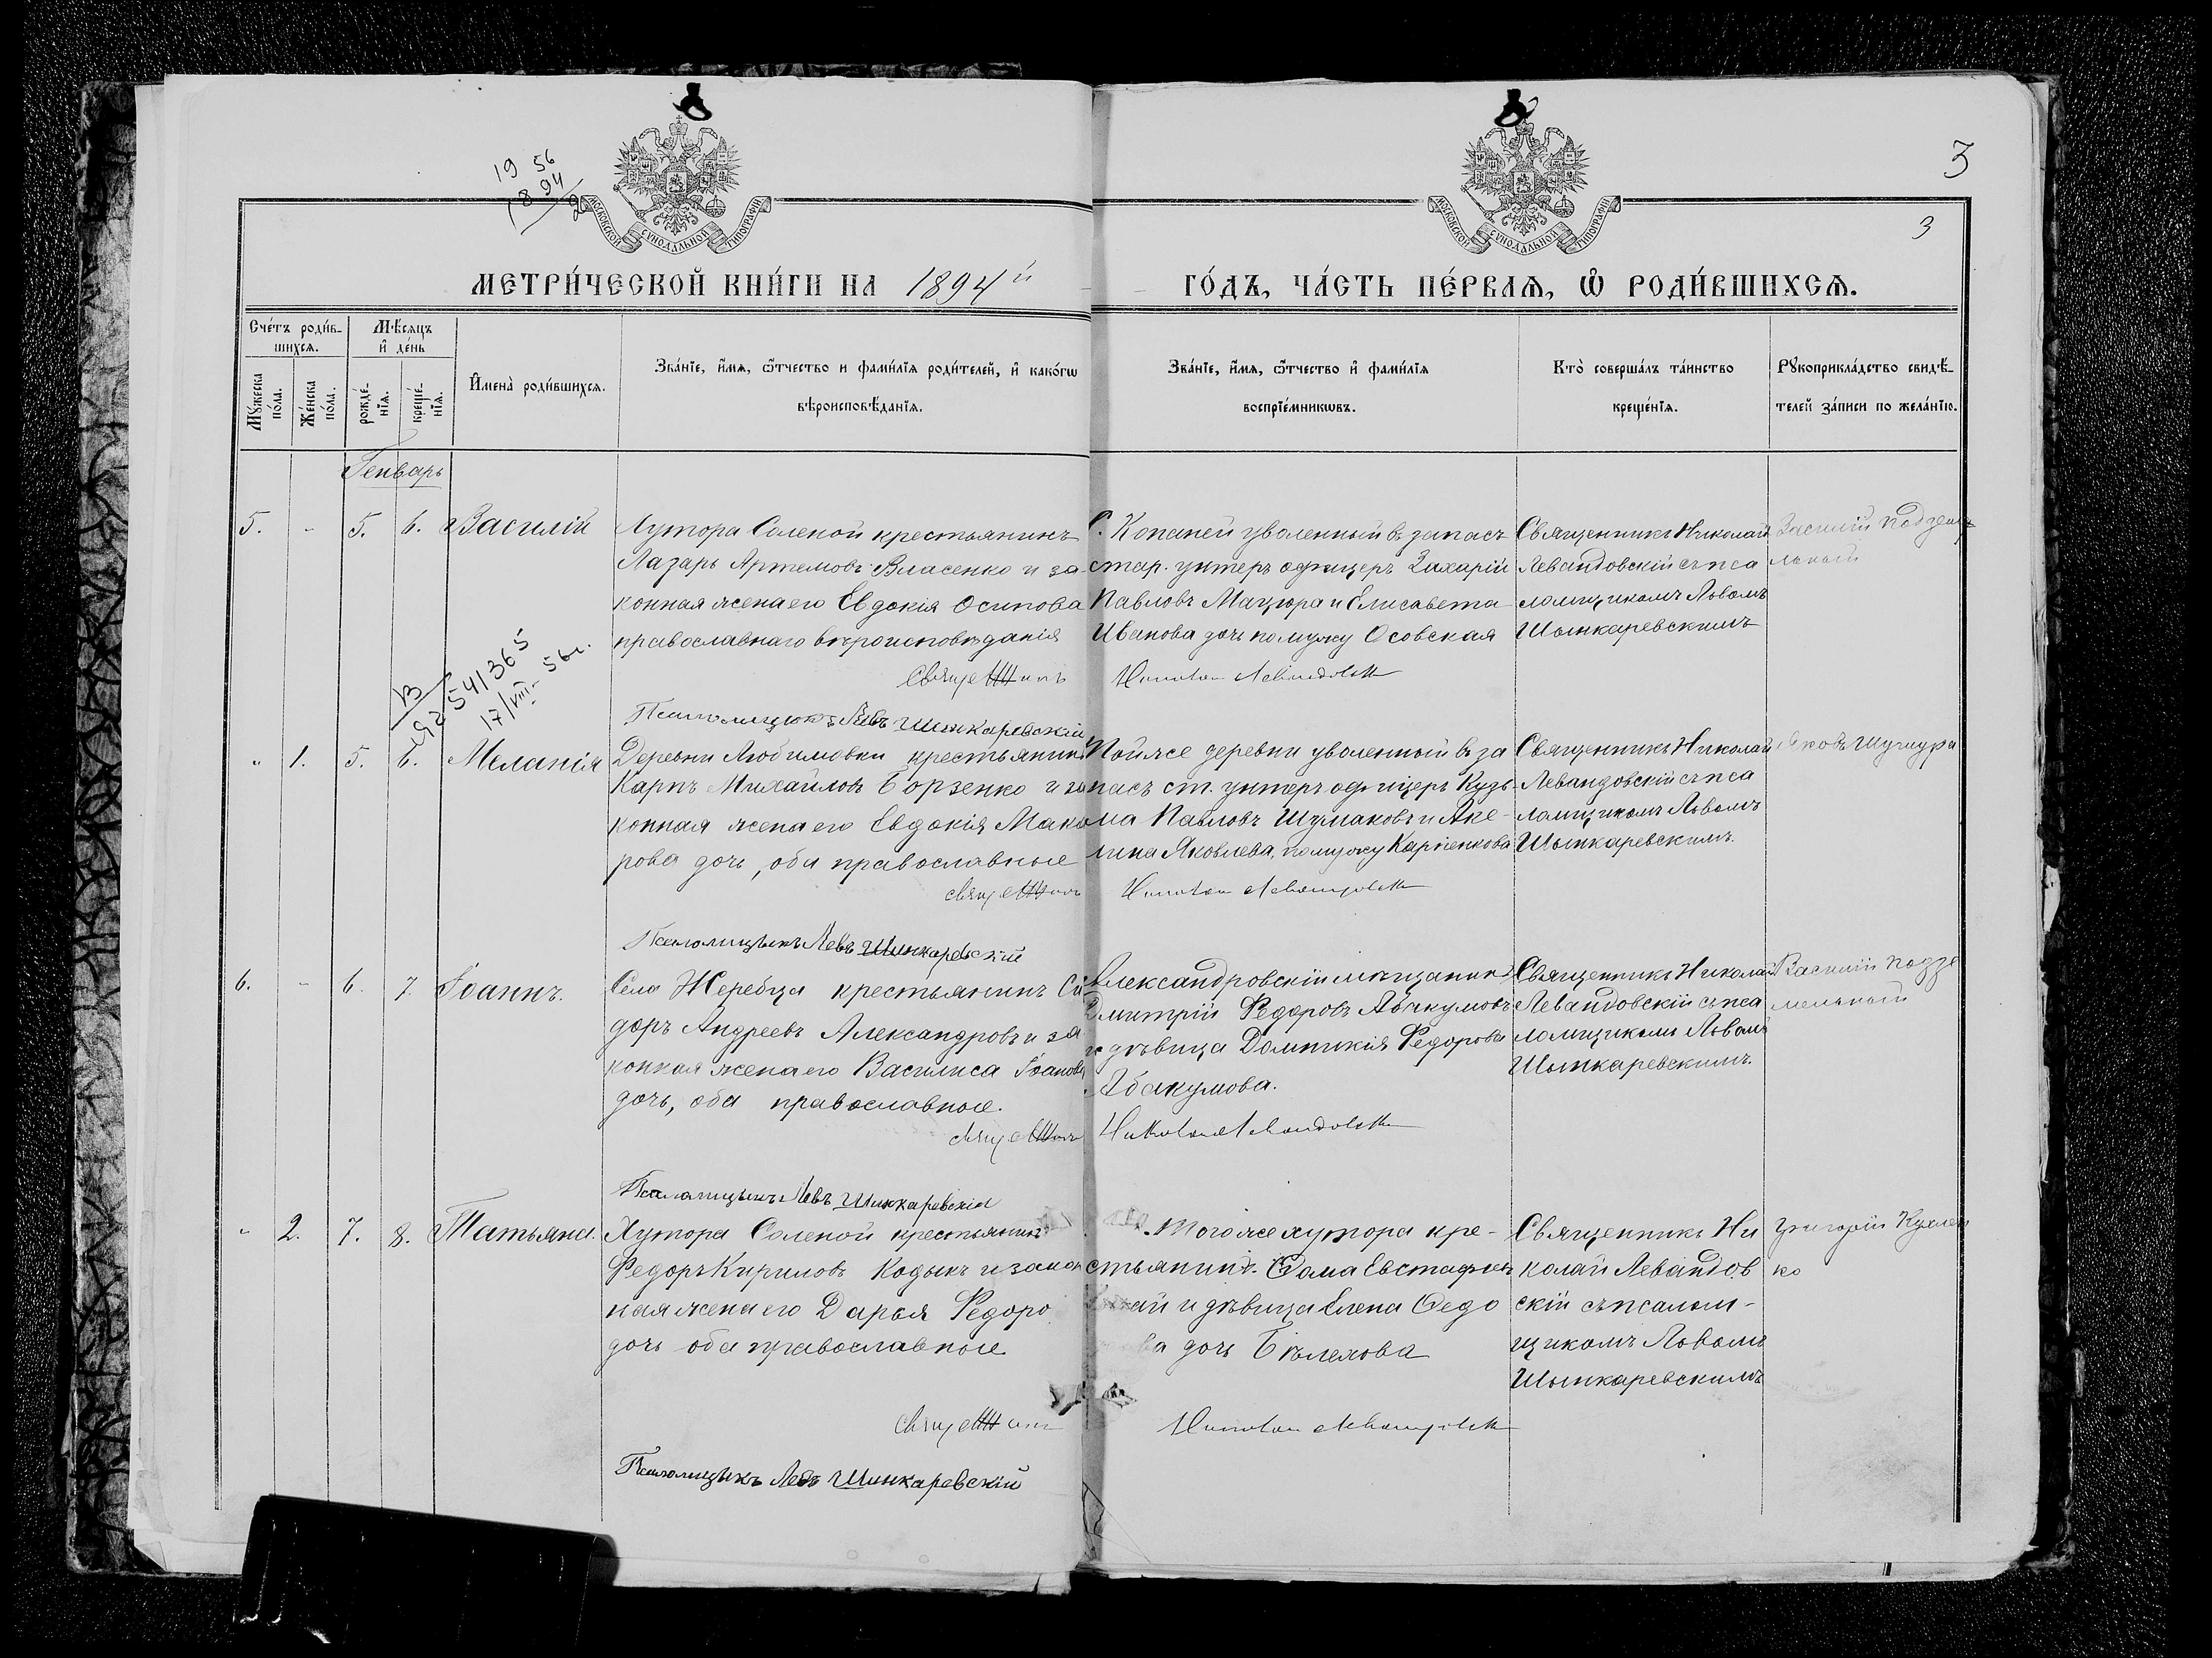 19 56
18 94
3
3
МОСКОВСКОЙ СѴНОДАЛЬНОЙ ТИПОГРАФІИ
МОСКОВСКОЙ СѴНОДАЛЬНОЙ ТИПОГРАФІИ
МЕТРИ́ЧЕСКОЙ КНИ́ГИ НА 1894й ГО́ДЪ, ЧА́СТЬ ПЕ́РВАѦ, Ѡ҆ РОДИ́ВШИХСѦ.
Сче́тъ роди́в-
шихсѧ.
Мѣ́сяцъ
и҆ де́нь
Мꙋ́жеска по́ла.
Же́нска по́ла.
рожде́-нїѧ.
креще́-нїѧ.
И҆мена̀ роди́вшихсѧ.
Зва́нїе, и҆́мѧ, ѻ҆́тчество и фами́лїѧ роди́телей, и҆ како́гѡ
вѣроисповѣ́данїѧ.
Зва́нїе, и҆́мѧ, ѻ҆́тчество и҆ фами́лїѧ
воспрїе́мникѡвъ.
Кто̀ соверша́лъ та́инство
креще́нїѧ.
Рꙋкоприкла́дство свидѣ́-
телей за́писи по жела́нїю.
Генварь
5. - 5. 6. Василій
Хутора Соленой крестьянинъ
Лазарь Артемовъ Власенко и за-
конная жена его Евдокія Осипова
православнаго вѣроисповѣданія
С. Копаней уволенный въ запасъ
стар. унтеръ офицеръ Захарій
Павловъ Мацюра и Елисавета
Иванова дочь по мужу Осовская
Священникъ Николай
Левандовскій съ пса
ломщикомъ Львомъ
Шынкаревскимъ
Василій Подземе
льный
Священникъ Николай Левандовскій
Псаломщикъ Левъ Шинкаревскій
17/VIII- 56г.
" 1. 5. 6. Меланія
Деревни Любимовки крестьянинъ
Карпъ Михайловъ Борзенко и за
конная жена его Евдокія Мака
рова дочь, оба православные
Той же деревни уволенный въ за
пасъ ст. унтеръ офицеръ Кузь-
ма Павловъ Шумаковъ и Аке-
лина Яковлева, по мужу Карпенкова
Священникъ Николай
Левандовскій съ пса
ломщикомъ Львомъ
Шынкаревскимъ.
Яковъ
Священникъ Николай Левандовскій
Псаломщикъ Левъ Шинкаревскій
6. - 6. 7. Іоаннъ.
Села Жеребца крестьянинъ Си
доръ Андреевъ Александровъ и за
конная жена его Василиса Іоанова
дочь, оба православные.
Александровскій мѣщанинъ
Дмитрій Федоровъ Абакумовъ
и дѣвица Домникія Федорова
Абакумова.
Священникъ Николай
Левандовскій съ пса
ломщикомъ Львомъ
Шынкаревскимъ.
Василій Подзе
мельный
Священникъ Николай Левандовскій
Псаломщикъ Левъ Шинкаревскій
" 2. 7. 8. Татьяна.
Хутора Соленой крестьянинъ
Федоръ Кириловъ Кодыкъ и закон
ная жена его Дарья Федоро
дочь оба православные
Того же хутора кре-
стьянинъ Фома Евстафіевъ
и дѣвица Елена Федо
ва дочь Бѣлехова
Священникъ Ни
колай Левандов
скій съ псалом-
щикомъ Львомъ
Шынкаревскимъ
Григорій
ко
Священникъ Николай Левандовскій
Псаломщикъ Левъ Шинкаревскій